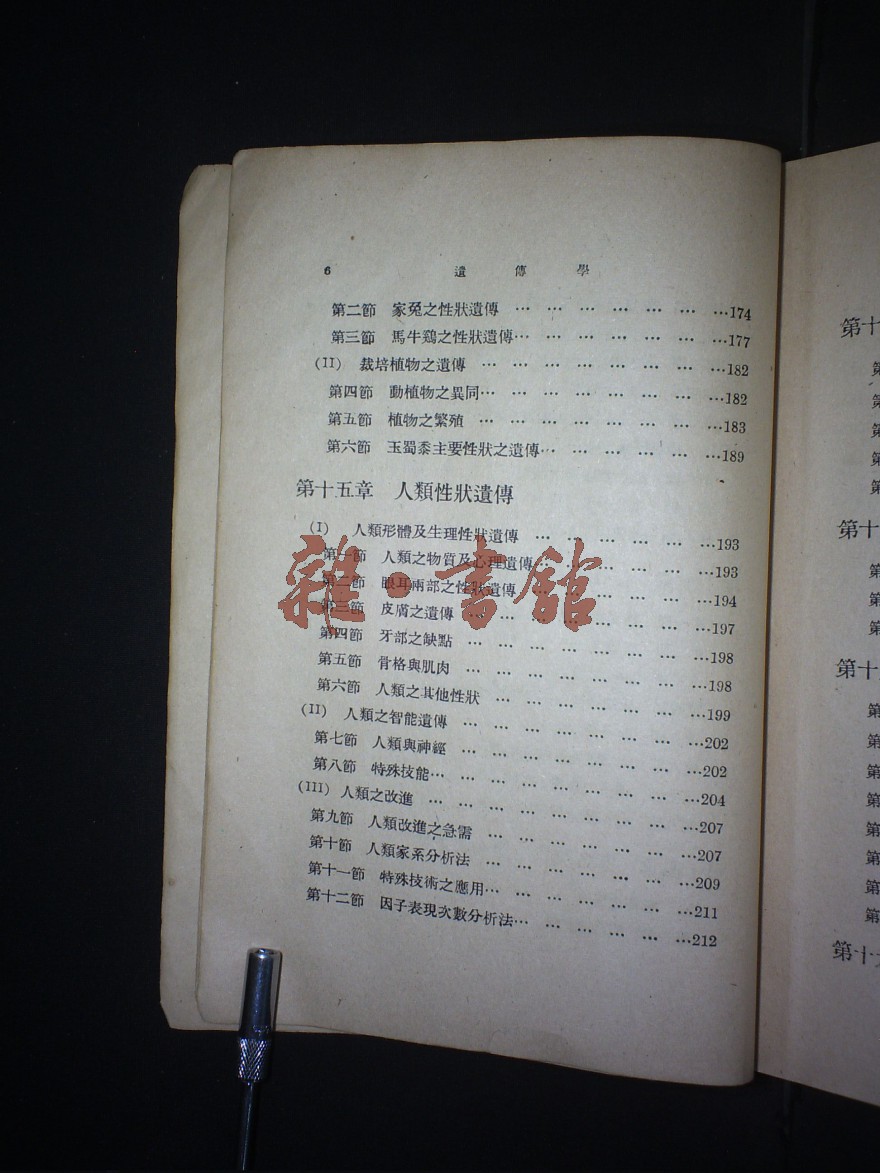 6 遺傳學
第二節 家兔之性狀遺傳 … … … … … … …174
第三節 馬牛鷄之性狀遺傳… … … … … … …177
(II) 栽培植物之遺傳 … … … … … … … …182
第四節 動植物之異同… … … … … … … …182
第五節 植物之繁殖 … … … … … … … …183
第六節 玉蜀黍主要性狀之遺傳… … … … … …189
第十五章 人類性狀遺傳
(I) 人類形體及生理性狀遺傳 … … … … … …193
第一節 人類之物質及心理遺傳… … … … … …193
第二節 眼耳兩部之性狀遺傳 … … … … … …194
第三節 皮膚之遺傳 … … … … … … … …197
第四節 牙部之缺點 … … … … … … … …198
第五節 骨格與肌肉 … … … … … … … …198
第六節 人類之其他性狀 … … … … … … …199
(II) 人類之智能遺傳 … … … … … … … …202
第七節 人類與神經 … … … … … … … …202
第八節 特殊技能… … … … … … … … …204
(III) 人類之改進 … … … … … … … … …207
第九節 人類改進之急需 … … … … … … …207
第十節 人類家系分析法 … … … … … … …209
第十一節 特殊技術之應用… … … … … … …211
第十二節 因子表現次數分析法… … … … … …212
雜·書館
第十
第
第
第
第
第
第十
第
第
第
第十
第
第
第
第
第
第
第
第
第十